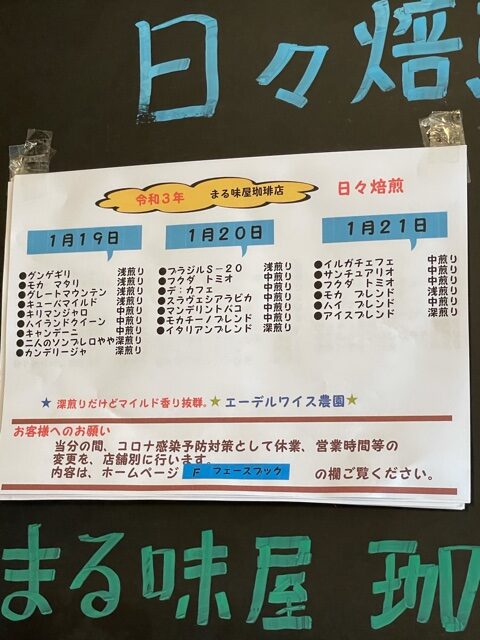 日々焙
令和3年 まる味屋珈琲店 日々焙煎
1月19日
●ゲンゲギリ 浅煎り
●モカ マタリ 浅煎り
●グレートマウンテン 浅煎り
●キューバマイルド 浅煎り
●キリマンジャロ 中煎り
●ハイランドクイーン 中煎り
●キャンデーニ 中煎り
●二人のソンブレロやや深煎り
●カンデリージャ 深煎り
1月20日
●ブラジルS-20 浅煎り
●フクダ トミオ 中煎り
●デ:カフェ 中煎り
●スラヴェシアラビカ 中煎り
●マンデリントバコ 中煎り
●モカチーノブレンド 中煎り
●イタリアンブレンド 深煎り
1月21日
●イルガチェフェ 中煎り
●サンチュアリオ 中煎り
●フクダ トミオ 中煎り
●モカ ブレンド 浅煎り
●ハイ ブレンド 中煎り
●アイスブレンド 深煎り
★ 深煎りだけどマイルド香り抜群。★ エーデルワイス農園★
お客様へのお願い
当分の間、コロナ感染予防対策として休業、営業時間等の
変更を、店舗別に行います。
内容は、ホームページ F フェースブック の欄ご覧ください。
まる味屋 珈